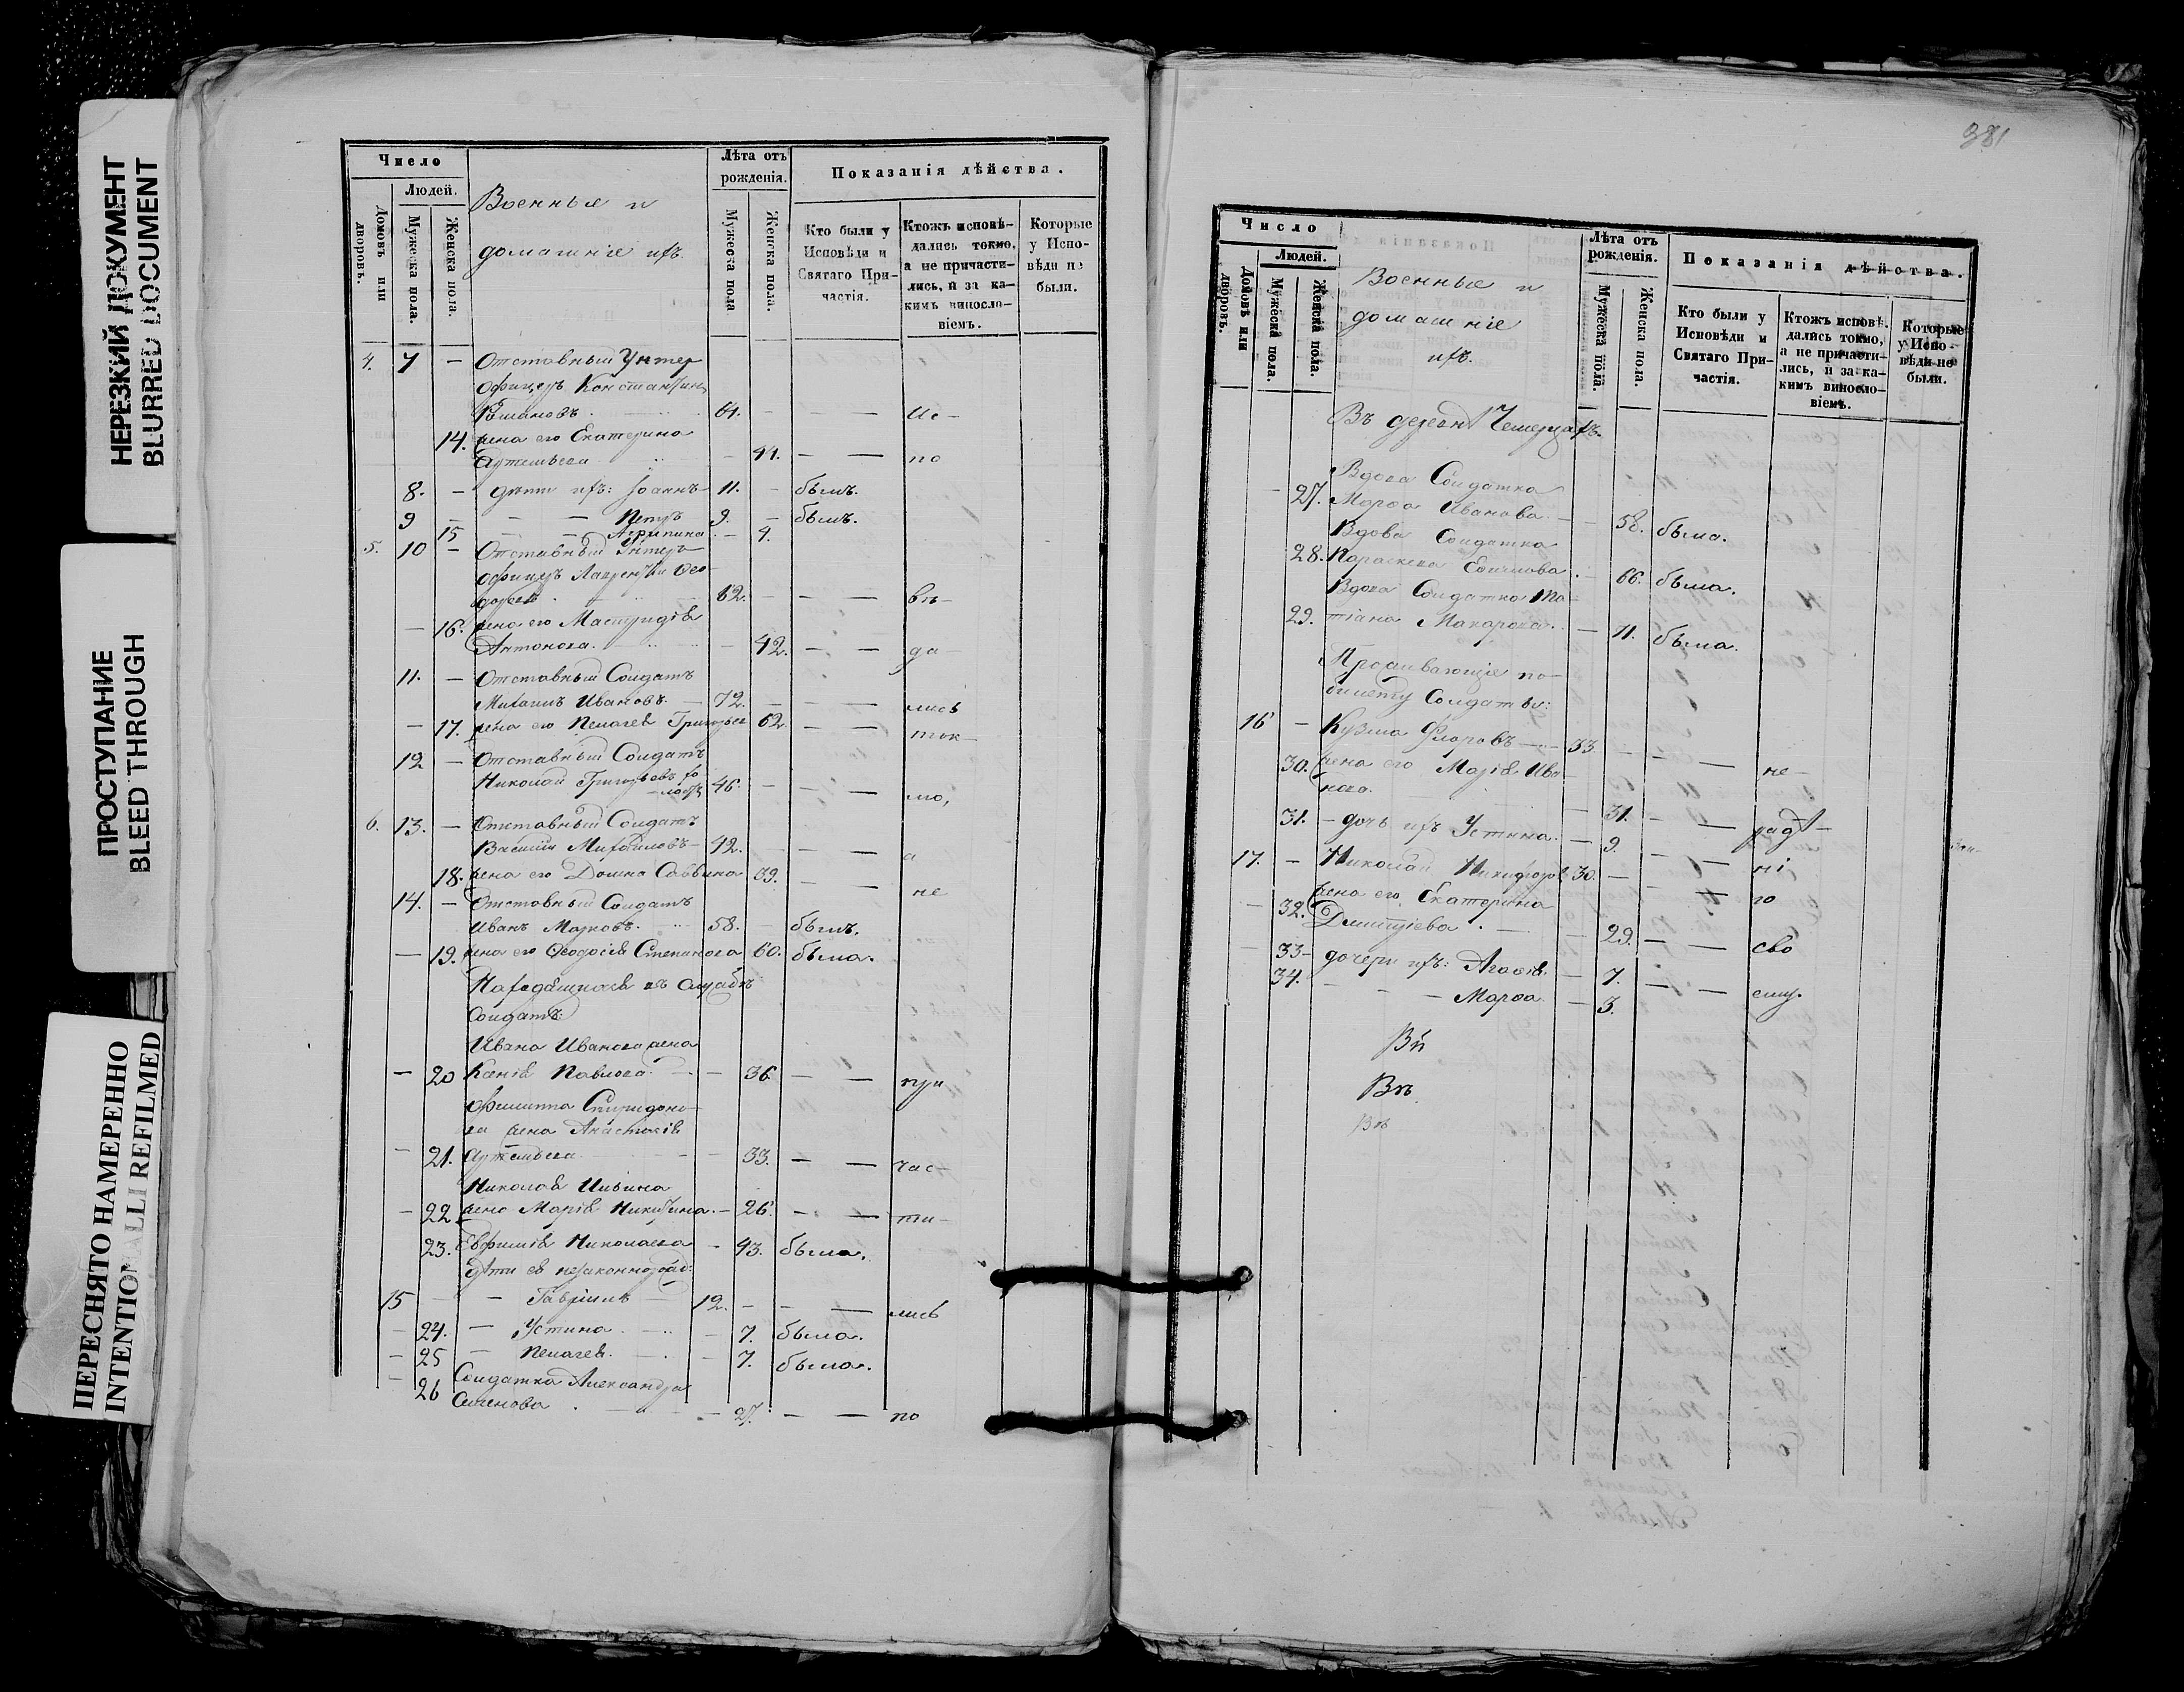 НЕРЕЗКИЙ ДОКУМЕНТ
BLURRED DOCUMENT
ПРОСТУПАНИЕ
BLEED THROUGH
ПЕРЕСНЯТО НАМЕРЕННО
INTENTIONALLI REFILMED
Число
Людей.
Домовъ или дворовъ.
Мужеска пола.
Женска пола.
Военные и
домашніе ихъ.
Лѣта отъ рожденія.
Мужеска пола
Женска пола.
Показанія дѣйства.
Кто были у Исповѣди и Святаго Причастія.
Ктожъ исповѣдались токмо, а не причастились, и за какимъ винословіемъ.
Которые у Исповѣди не были.
4. 7 — Отставный Унтер
офицеръ Константинъ
Романовъ. 61. — — Ис-
14. жена его Екатерина
Артемьева — 41. — — по
8. — дѣти ихъ: Іоаннъ 11. — былъ.
9 — — Петръ 9. — былъ.
15 — — Агрипина — 4.
5. 10 — Отставный Унтеръ
офицеръ Лаврентій Ѳео-
доровъ 62. — — вѣ-
— 16. жена его Мастридія
Антонова. — 42. — — да-
11. — Отставный Солдатъ
Михаилъ Ивановъ. — 72. — — лись
— 17. жена его Пелагея Григорьева 62. — — ток-
12 — Отставный Солдатъ
Николай Григорьевъ хо-
лостъ 46. — — мо,
6. 13. — Отставный Солдатъ
Василій Михайловъ — 42. — — а
18. жена его Домна Саввина 39. — — не
14. — Отставный Солдатъ
Иванъ Марковъ. 58. — былъ.
— 19. жена его Ѳеодосія Степанова 60. была.
Находящихся въ службѣ
Солдатъ:
Ивана Иванова жена
— 20 Ксенія Павлова. — 36. — — при
Филиппа Спиридоно-
ва жена Анастасія
— 21. Артемьева — 33. — — час-
Николая Ильина
— 22 жена Марія Никитина. — 26. — — ти-
23. Евфимія Николаева — 43. была.
дѣти ея незаконнорожд:
15 — — Гавріилъ — 12. — — лись
— 24. — Устина. — 7. была.
— 25 — Пелагея. — 7. была.
— 26 Солдатка Александра
Семенова — 27. — — по
381
Число
Людей.
Домовъ или дворовъ.
Мужеска пола.
Женска пола.
Военные и
домашніе
ихъ.
Лѣта отъ рожденія.
Мужеска пола.
Женска пола.
Показанія дѣйства.
Кто были у Исповѣди и Святаго Причастія.
Ктожъ исповѣдались токмо, а не причастились, и за какимъ винословіемъ.
Которые у Исповѣди не были.
Вдова Солдатка
— 27. Марѳа Иванова. — 58. была.
Вдова Солдатка
28. Параскева — 66. была.
Вдова Солдатка Та-
29. тіана Макарова. — 71. была.
Проживающіе по
билету Солдаты:
16 — Кузма Флоровъ — 33. — — не-
30. жена его Марія Ива-
нова. — 31. — — радѣ-
31. — дочь ихъ Устина. — 9. — — ні
17. — Николай Никифоровъ 30. — — го
— 32. жена его Екатерина
Дмитріева. — 29. — — сво
— 33 — дочери ихъ: Агафія — 7. — — ему.
34. — — Марѳа. — 3.
Вѣ
Въ
Въ